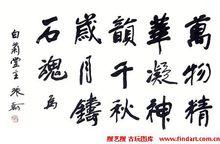 万物精
華凝神
韻千秋
歲月鑄
石魂
白菊堂主
搜艺搜 古玩图库
www.findart.com.cn